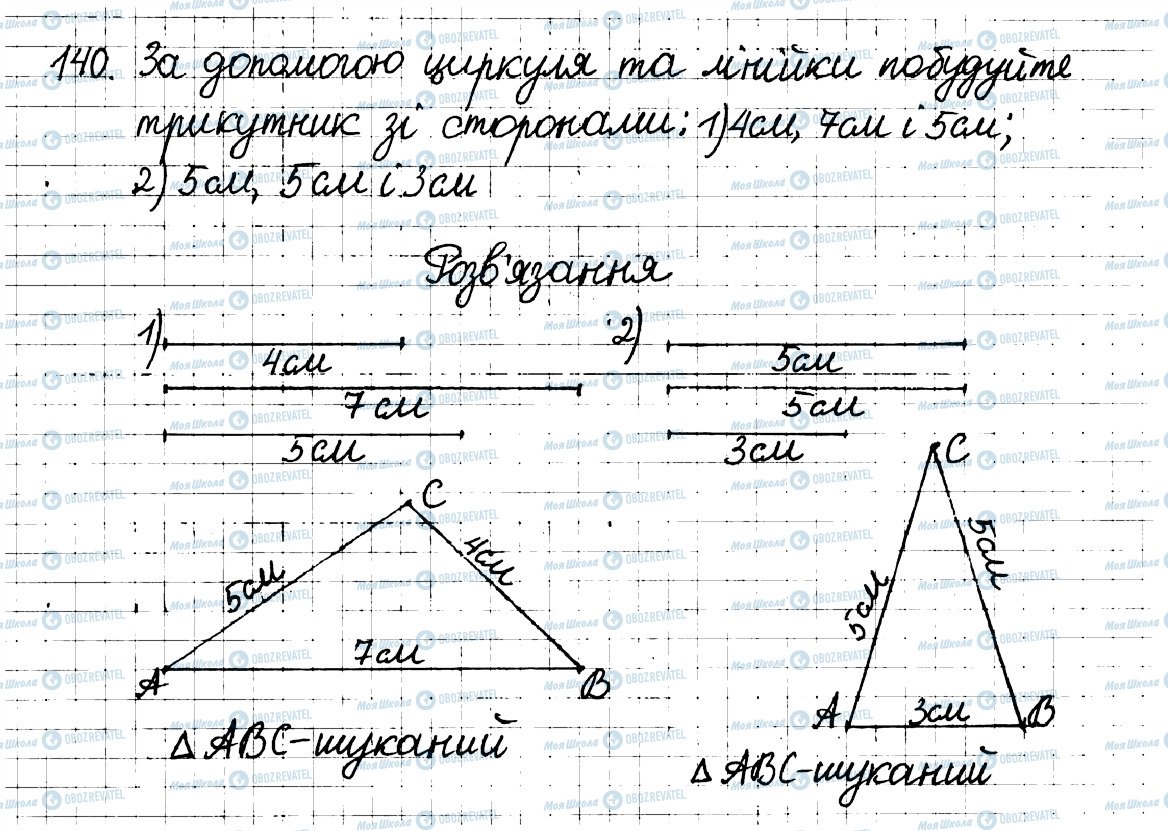 140. За допомогою циркуля та лінійки побудуйте
трикутник зі сторонами: 1) 4см, 7см і 5см;
2) 5см, 5см і 3см
Розв'язання
1)
4см
7см
5см
2)
5см
5см
3см
C
5см
4см
7см
A
B
△ABC-шуканий
C
5см
5см
A
3см
B
△ABC-шуканий
МояШкола OBOZREVATEL